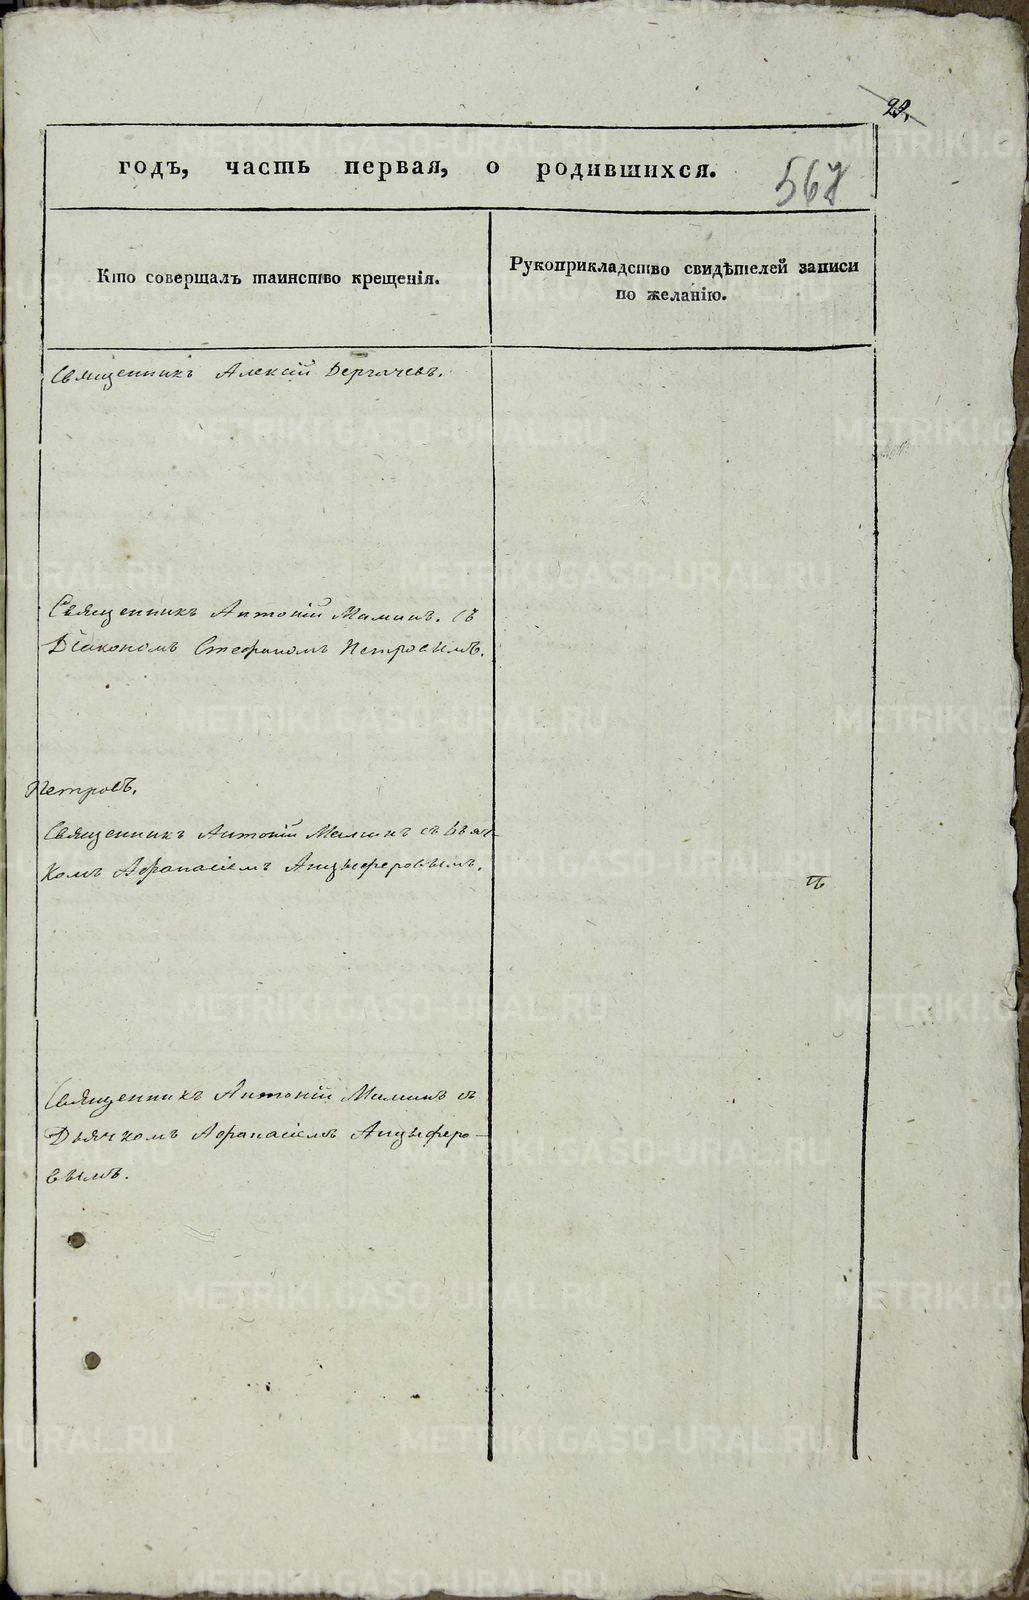 29.
годъ, часть первая, о родившихся.
567
Кто совершалъ таинство крещенія.
Рукоприкладство свидѣтелей записи
по желанію.
Священникъ Алексій Дергачевъ.
Священникъ Антоній Маминъ. съ
Діакономъ Стефаномъ Петровымъ.
Петровъ.
Священникъ Антоній Маминъ съ Дьяч-
комъ Афанасіемъ Анцыферовымъ.
Священникъ Антоній Маминъ съ
Дьячкомъ Афанасіемъ Анцыферо-
вымъ.
METRIKI.GASO-URAL.RU